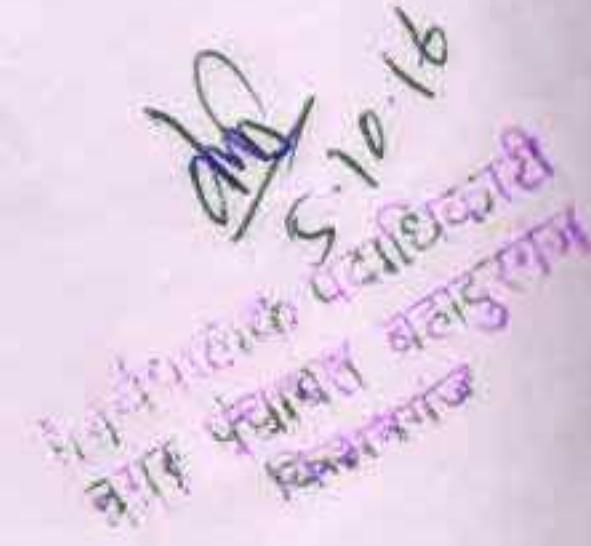 5.10.16
पदाधिकारी
नगर पंचायत बहादुरगंज
किशनगंज